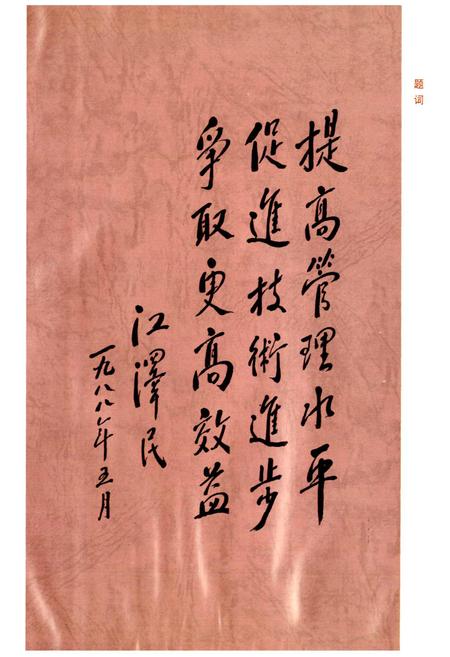 题词
提高管理水平
促進技術進步
爭取更高效益
江澤民
一九八八年五月